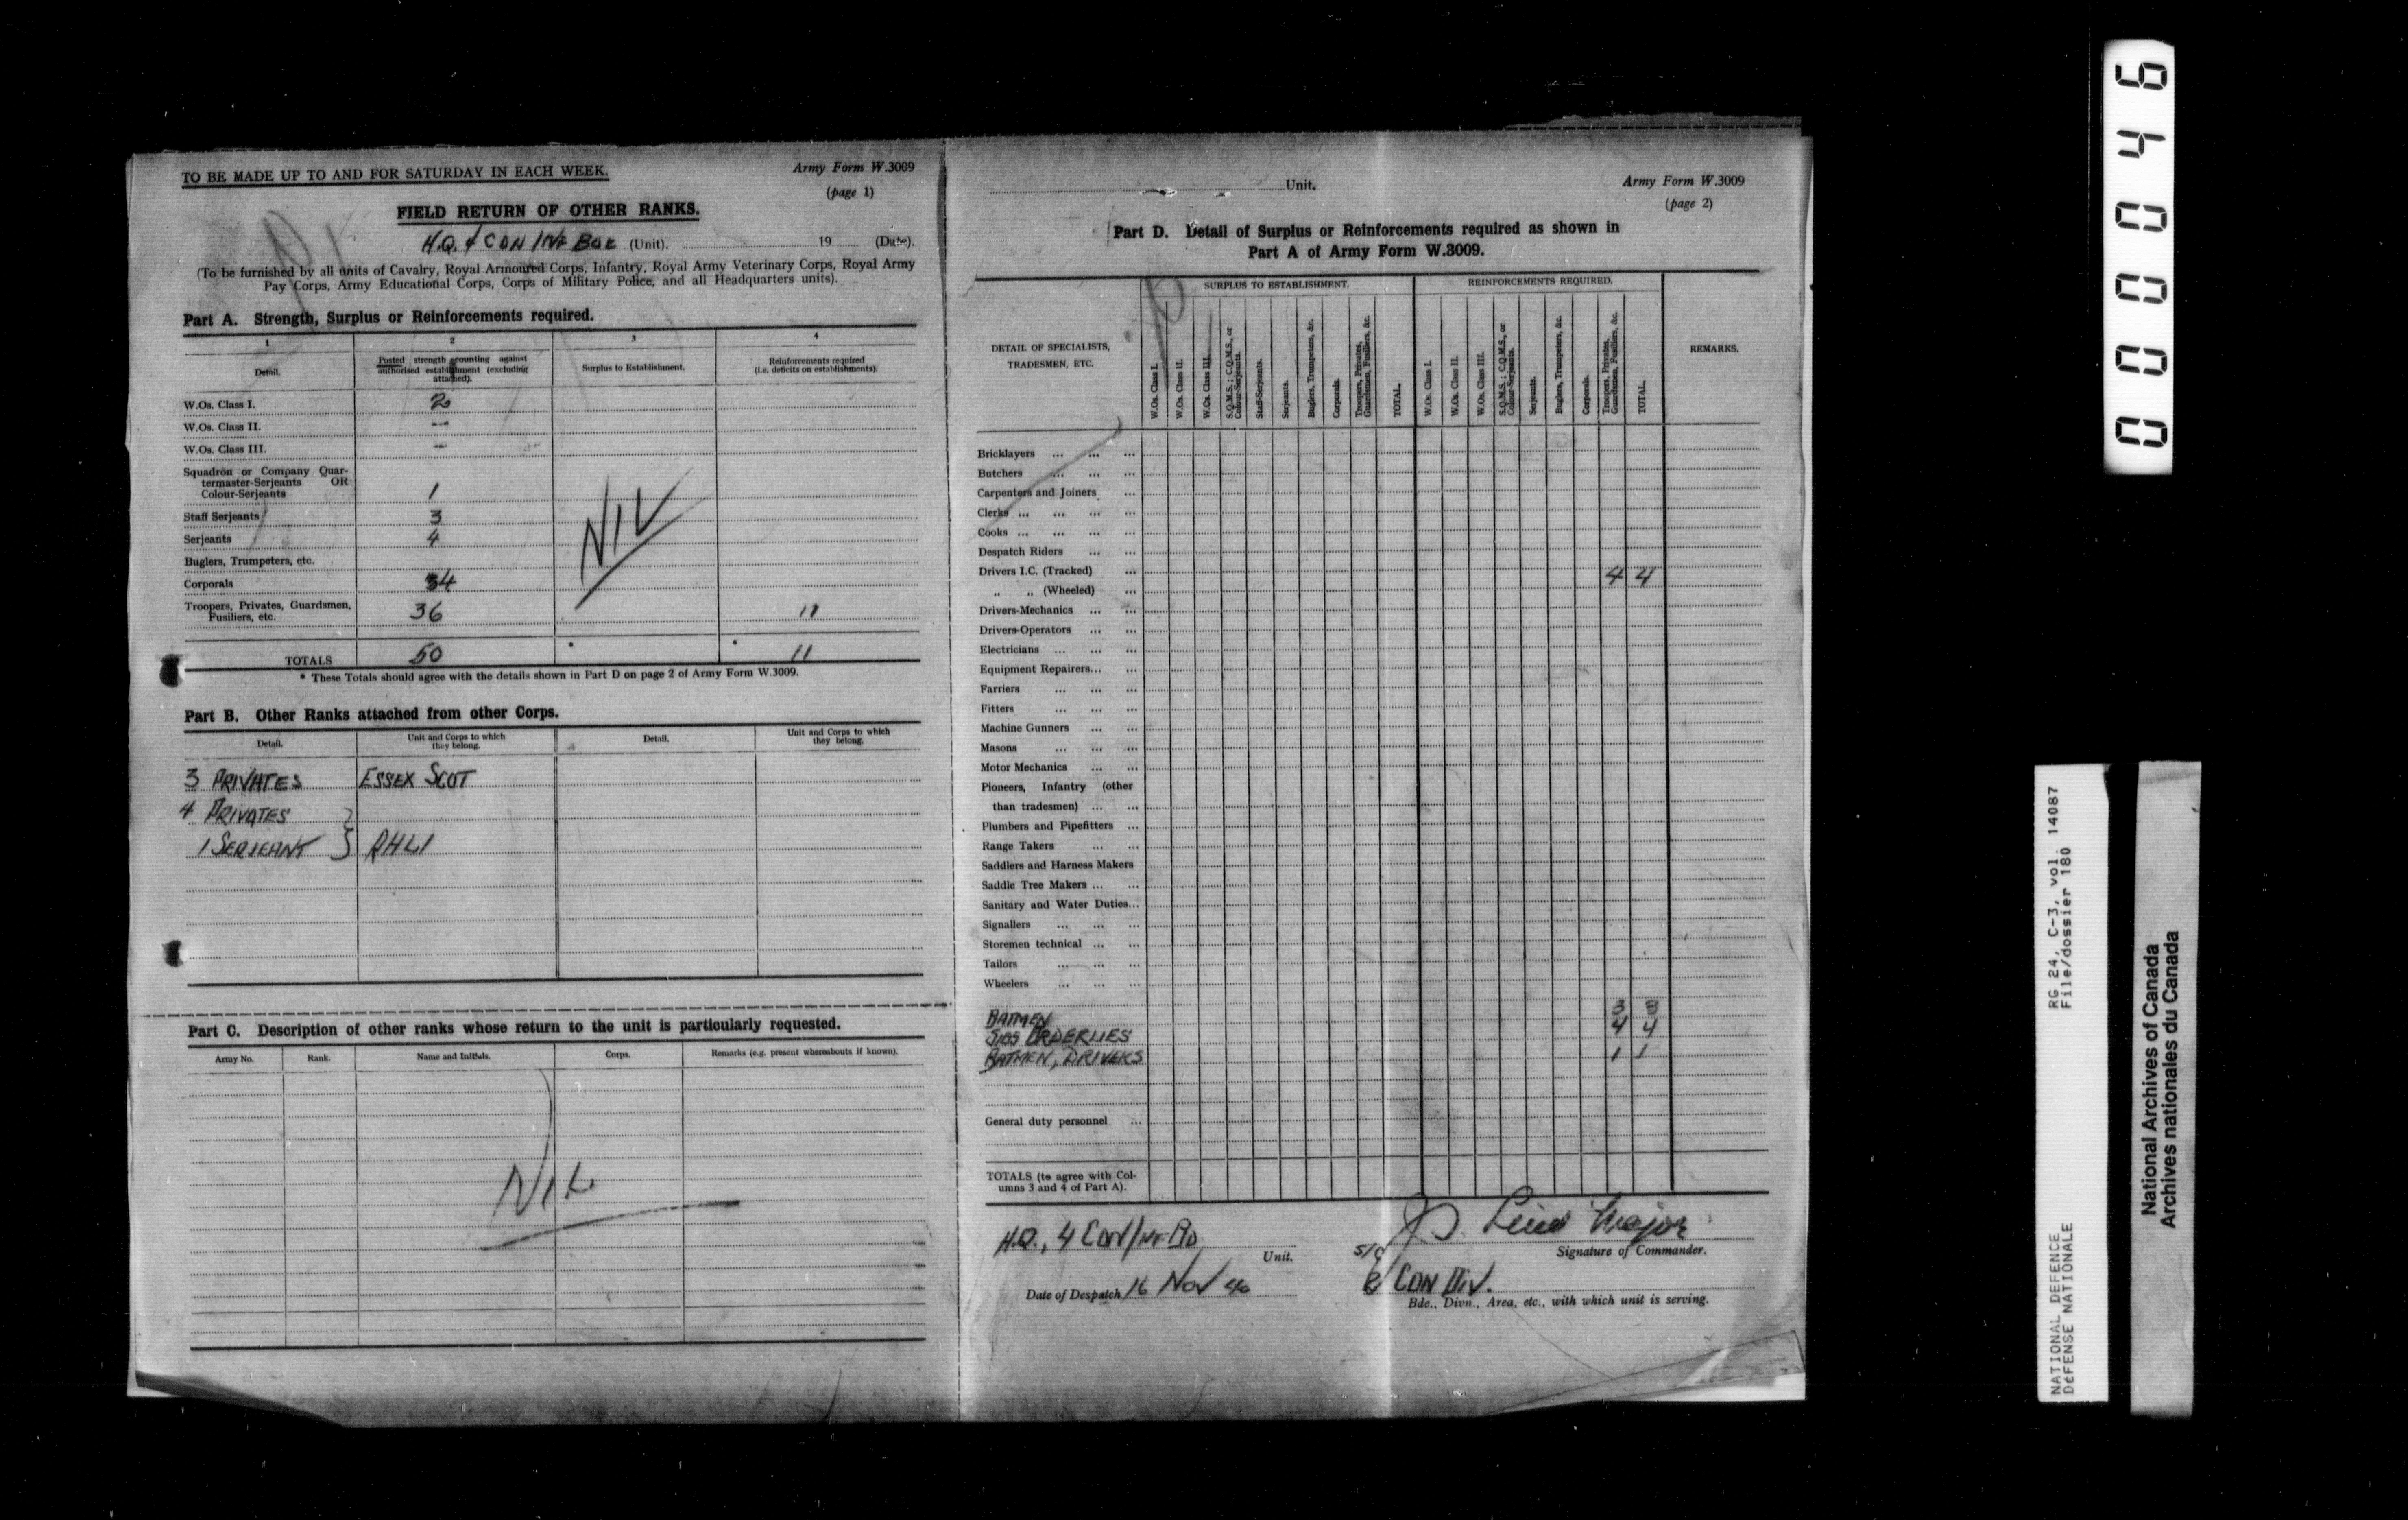 TO BE MADE UP TO AND FOR SATURDAY IN EACH WEEK.
Army Form W.3009
(page 1)
FIELD RETURN OF OTHER RANKS.
H.Q. 4 CDN INF BDE (Unit). 19 (Date).
(To be furnished by all units of Cavalry, Royal Armoured Corps, Infantry, Royal Army Veterinary Corps, Royal Army
Pay Corps, Army Educational Corps, Corps of Military Police, and all Headquarters units).
Part A. Strength, Surplus or Reinforcements required.
1 2 3 4
Detail.
Posted strength counting against
authorised establishment (excluding
attached).
Surplus to Establishment.
Reinforcements required
(i.e. deficits on establishments).
W.Os. Class I. 2
W.Os. Class II. —
W.Os. Class III. —
Squadron or Company Quar-
termaster-Serjeants OR
Colour-Serjeants 1
Staff Serjeants 3
Serjeants 4
NIL
Buglers, Trumpeters, etc.
Corporals 4
Troopers, Privates, Guardsmen,
Fusiliers, etc. 36 11
TOTALS 50 * * 11
* These Totals should agree with the details shown in Part D on page 2 of Army Form W.3009.
Part B. Other Ranks attached from other Corps.
Detail.
Unit and Corps to which
they belong.
Detail.
Unit and Corps to which
they belong.
3 PRIVATES ESSEX SCOT
4 PRIVATES
1 SERJEANT } RHLI
Part C. Description of other ranks whose return to the unit is particularly requested.
Army No. Rank. Name and Initials. Corps. Remarks (e.g. present whereabouts if known).
NIL
Unit.
Army Form W.3009
(page 2)
Part D. Detail of Surplus or Reinforcements required as shown in
Part A of Army Form W.3009.
DETAIL OF SPECIALISTS,
TRADESMEN, ETC.
SURPLUS TO ESTABLISHMENT.
W.Os. Class I.
W.Os. Class II.
W.Os. Class III.
S.Q.M.S.; C.Q.M.S., or
Colour-Serjeants.
Staff-Serjeants.
Serjeants.
Buglers, Trumpeters, &c.
Corporals.
Troopers, Privates,
Guardsmen, Fusiliers, &c.
TOTAL.
REINFORCEMENTS REQUIRED.
W.Os. Class I.
W.Os. Class II.
W.Os. Class III.
S.Q.M.S.; C.Q.M.S., or
Colour-Serjeants.
Serjeants.
Buglers, Trumpeters, &c.
Corporals.
Troopers, Privates,
Guardsmen, Fusiliers, &c.
TOTAL.
REMARKS.
Bricklayers ... ... ...
Butchers ... ... ...
Carpenters and Joiners ...
Clerks ... ... ... ...
Cooks ... ... ... ...
Despatch Riders ... ...
Drivers I.C. (Tracked) ... 4 4
„ „ (Wheeled) ...
Drivers-Mechanics ... ...
Drivers-Operators ... ...
Electricians ... ... ...
Equipment Repairers... ...
Farriers ... ... ...
Fitters ... ... ...
Machine Gunners ... ...
Masons ... ... ...
Motor Mechanics ... ...
Pioneers, Infantry (other
than tradesmen) ... ...
Plumbers and Pipefitters ...
Range Takers ... ...
Saddlers and Harness Makers
Saddle Tree Makers ... ...
Sanitary and Water Duties...
Signallers ... ... ...
Storemen technical ... ...
Tailors ... ... ...
Wheelers ... ... ...
BATMEN 3 3
ORDERLIES 4 4
BATMEN, DRIVERS 1 1
General duty personnel ...
TOTALS (to agree with Col-
umns 3 and 4 of Part A).
H.Q., 4 CDN INF BD
Unit.
Major
Signature of Commander.
Date of Despatch 16 Nov 40
CDN DIV.
Bde., Divn., Area, etc., with which unit is serving.
000046
NATIONAL DEFENCE RG 24, C-3, vol. 14087
DéFENSE NATIONALE File/dossier 180
National Archives of Canada
Archives nationales du Canada